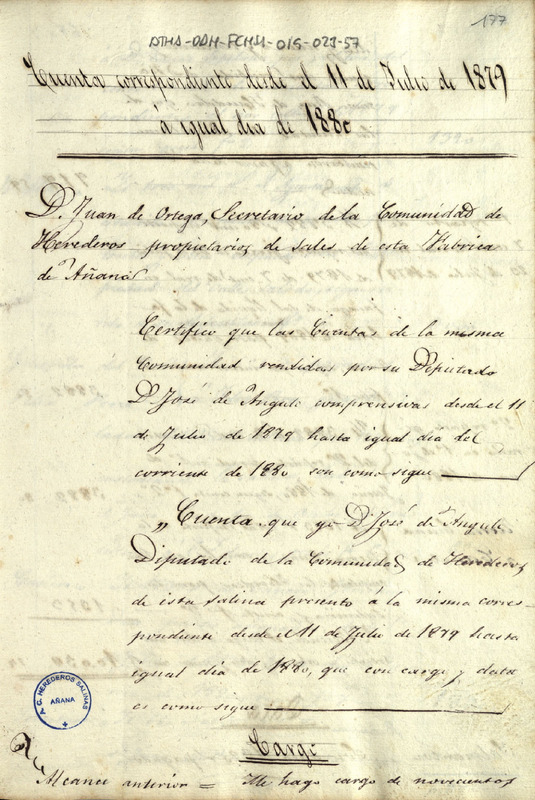 177
ATHA-DAH-FCHSA-016-029-57
Cuenta correspondiente desde el 11 de Julio de 1879
á igual dia de 1880
D. Juan de Ortega, Secretario de la Comunidad de
Herederos propietarios de sales de esta Fabrica
de Añana
Certifico que las Cuentas de la misma
Comunidad rendidas por su Diputado
D. José de Angulo comprensivas desde el 11
de Julio de 1879 hasta igual dia del
corriente de 1880 son como sigue
„Cuenta que yo D. José de Angulo
Diputado de la Comunidad de Herederos
de esta Salina presento á la misma corres-
pondiente desde el 11 de Julio de 1879 hasta
igual dia de 1880, que con cargo y data
es como sigue
Cargo
Alcance anterior = Me hago cargo de novecientos
C. HEREDEROS SALINAS
AÑANA